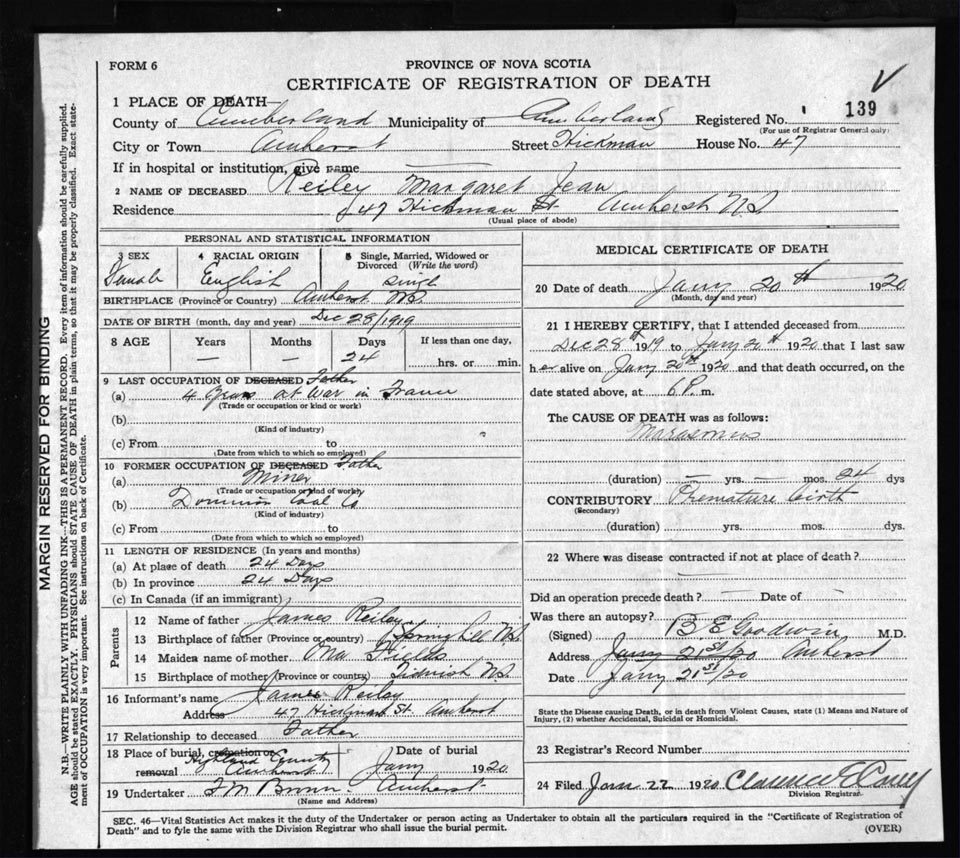 FORM 6
PROVINCE OF NOVA SCOTIA
CERTIFICATE OF REGISTRATION OF DEATH
139
1 PLACE OF DEATH—
County of Cumberland Municipality of Cumberland Registered No.
(For use of Registrar General only)
City or Town Amherst Street Hickman House No. 47
If in hospital or institution, give name
2 NAME OF DECEASED Reiley Margaret Jean
Residence 47 Hickman St. Amherst N.S.
(Usual place of abode)
PERSONAL AND STATISTICAL INFORMATION
3 SEX 4 RACIAL ORIGIN 5 Single, Married, Widowed or Divorced (Write the word)
Female English Single
BIRTHPLACE (Province or Country) Amherst N.S.
DATE OF BIRTH (month, day and year) Dec 28/1919
8 AGE Years Months Days If less than one day,
— — 24 hrs. or min.
9 LAST OCCUPATION OF DECEASED Father
(a) 4 years at War in France
(Trade or occupation or kind or work)
(b)
(Kind of industry)
(c) From to
(Date from which to which so employed)
10 FORMER OCCUPATION OF DECEASED Father
(a) Miner
(Trade or occupation or kind of work)
(b) Dominion Coal Co
(Kind of industry)
(c) From to
(Date from which to which so employed)
11 LENGTH OF RESIDENCE (In years and months)
(a) At place of death 24 Days
(b) In province 24 Days
(c) In Canada (if an immigrant)
Parents
12 Name of father James Reiley
13 Birthplace of father (Province or country) Springhill N.S.
14 Maiden name of mother Ona Fields
15 Birthplace of mother (Province or country) Tidnish N.S.
16 Informant's name James Reiley
Address 47 Hickman St. Amherst
17 Relationship to deceased Father
18 Place of burial, cremation or removal Highland Amherst Date of burial Jany 1920
19 Undertaker Amherst
(Name and Address)
MEDICAL CERTIFICATE OF DEATH
20 Date of death Jany 20th 1920
(Month, day and year)
21 I HEREBY CERTIFY, that I attended deceased from
Dec 28th 1919 to Jany 20th 1920 that I last saw
her alive on Jany 20th 1920 and that death occurred, on the
date stated above, at 6 P. m.
The CAUSE OF DEATH was as follows:
Marasmus
(duration) — yrs. — mos. 24 dys
CONTRIBUTORY Premature birth
(Secondary)
(duration) yrs. mos. dys.
22 Where was disease contracted if not at place of death?
Did an operation precede death? — Date of -
Was there an autopsy?
(Signed) B E Goodwin M.D.
Address Jany 21st/20 Amherst
Date Jany 21st/20
State the Disease causing Death, or in death from Violent Causes, state (1) Means and Nature of
Injury, (2) whether Accidental, Suicidal or Homicidal.
23 Registrar's Record Number
24 Filed Jan 22 1920 Clarence E
Division Registrar
SEC. 46—Vital Statistics Act makes it the duty of the Undertaker or person acting as Undertaker to obtain all the particulars required in the "Certificate of Registration of
Death" and to fyle the same with the Division Registrar who shall issue the burial permit.
(OVER)
MARGIN RESERVED FOR BINDING
N.B.—WRITE PLAINLY WITH UNFADING INK—THIS IS A PERMANENT RECORD. Every item of information should be carefully supplied.
AGE should be stated EXACTLY. PHYSICIANS should STATE CAUSE OF DEATH in plain terms, so that it may be properly classified. Exact state-
ment of OCCUPATION is very important. See instructions on back of Certificate.